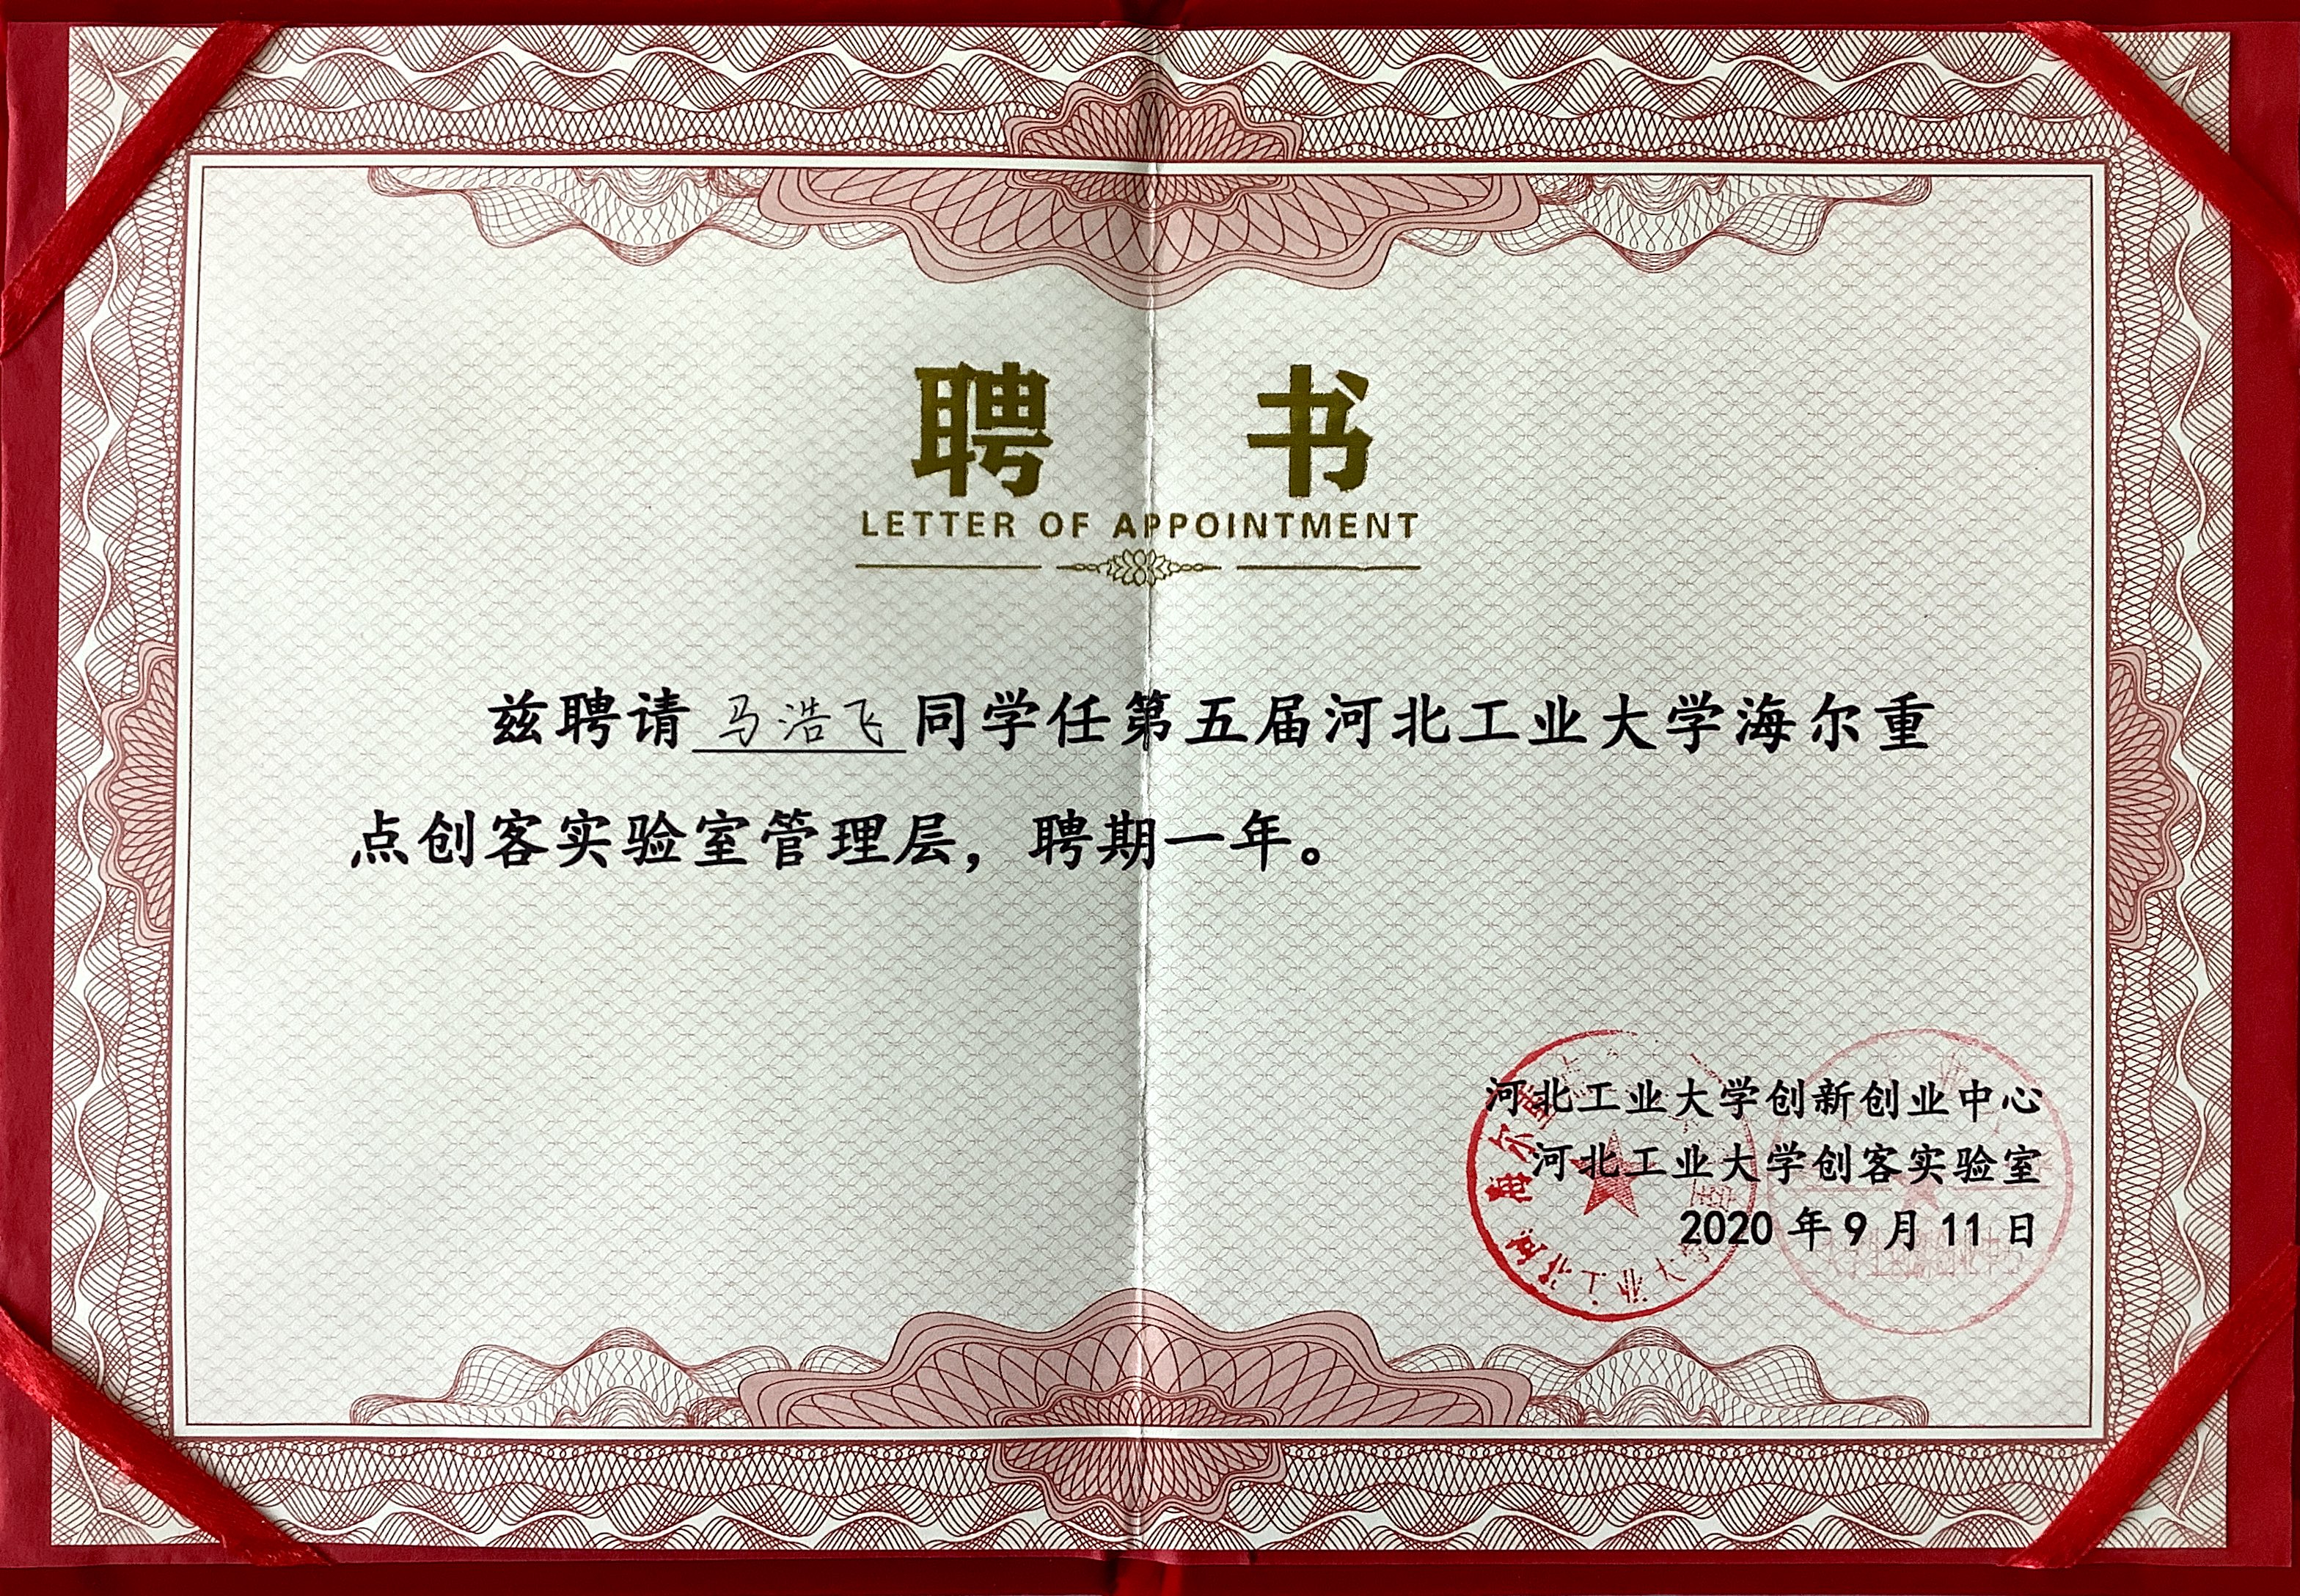 聘 书
LETTER OF APPOINTMENT
兹聘请马浩飞同学任第五届河北工业大学海尔重
点创客实验室管理层，聘期一年。
河北工业大学创新创业中心
河北工业大学创客实验室
2020年9月11日